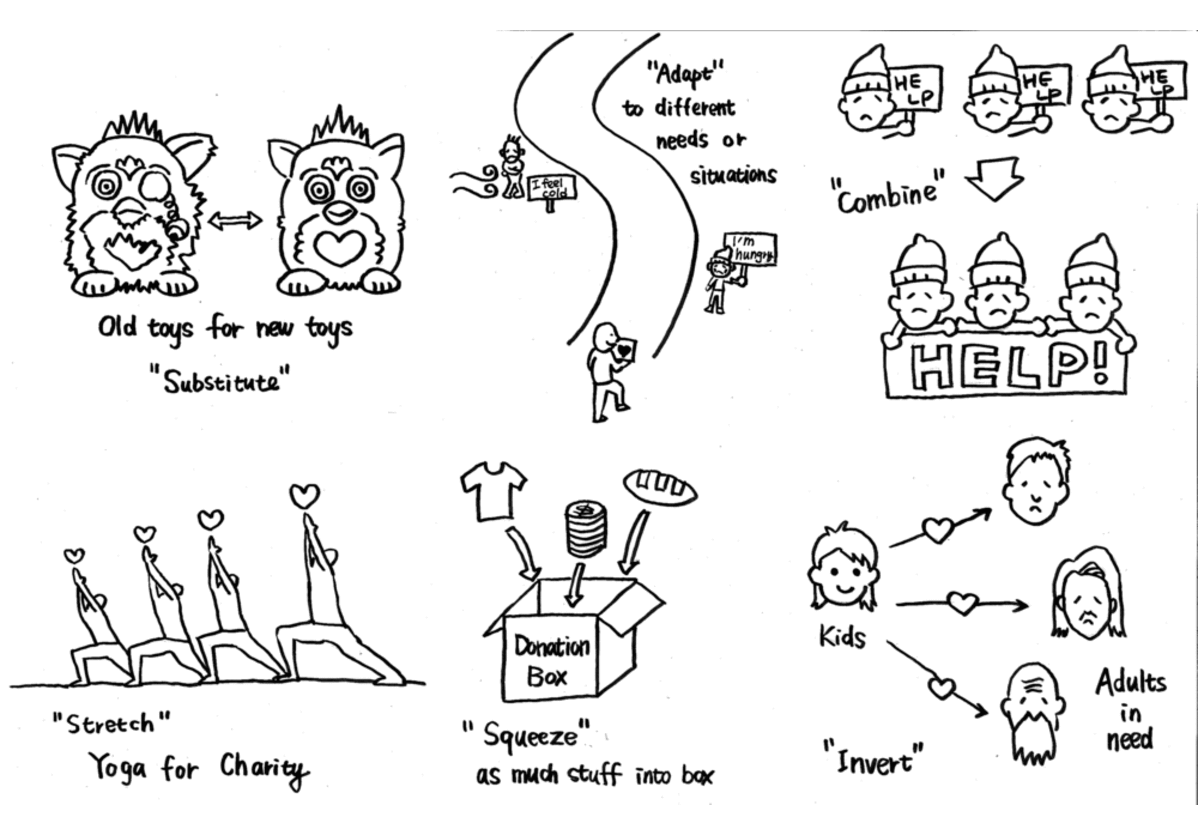 Old toys for new toys
"Substitute"
"Adapt"
to different
needs or
situations
I feel
cold
I'm
hungry
HE
LP
HE
LP
HE
LP
"Combine"
HELP!
"Stretch"
Yoga for Charity
Donation
Box
"Squeeze"
as much stuff into box
Kids
Adults
in
need
"Invert"